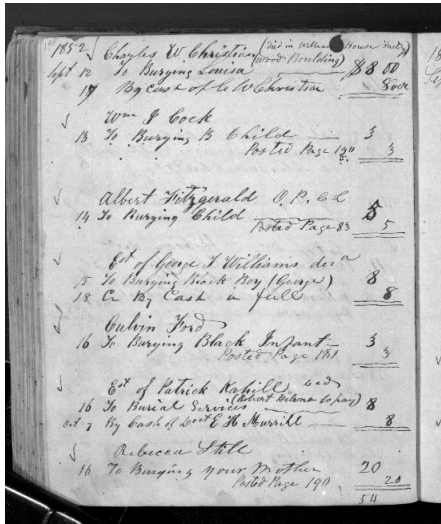 1852
Charles W Christian (Died in House Factory)
(Wood Boulding)
Sept 12 To Burying Louisa $8 00
17 By cash of C W Christian 8 00
Wm J Cock
13 To Burying B Child 3
Posted Page 190 3
Albert Fitzgerald O. P.
14 To Burying Child 5
Posted Page 83 5
Est of George T Williams decd
15 To Burying Black Boy (George) 8
18 Cr By Cash in full 8
Culvin Ford
16 To Burying Black Infant 3
Posted Page 181 3
Est of Patrick Kahill decd
(Robert to pay)
16 To Burial Services 8
Oct 7 By Cash of Doct E H Murrill 8
Rebecca Still
16 To Burying your Mother 20
Posted Page 190 20
54